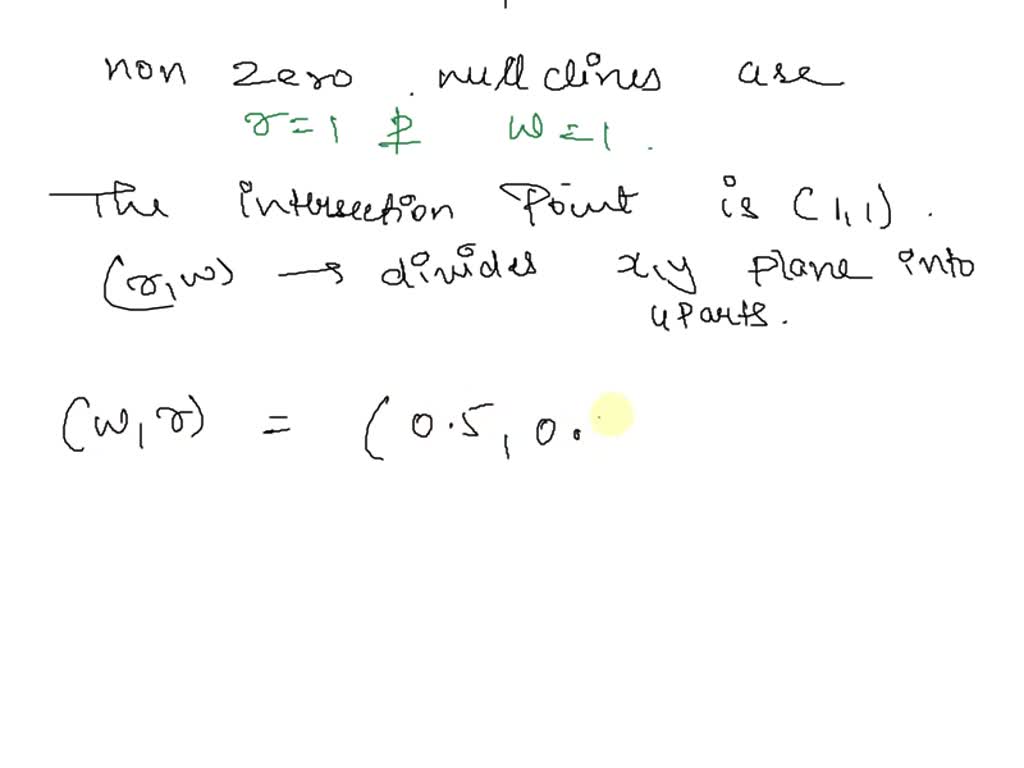 non zero nullclines are
r=1 & w=1.
The intersection point is (1,1).
(r,w) → divides x,y plane into
4 parts.
(w,r) = (0.5, 0.